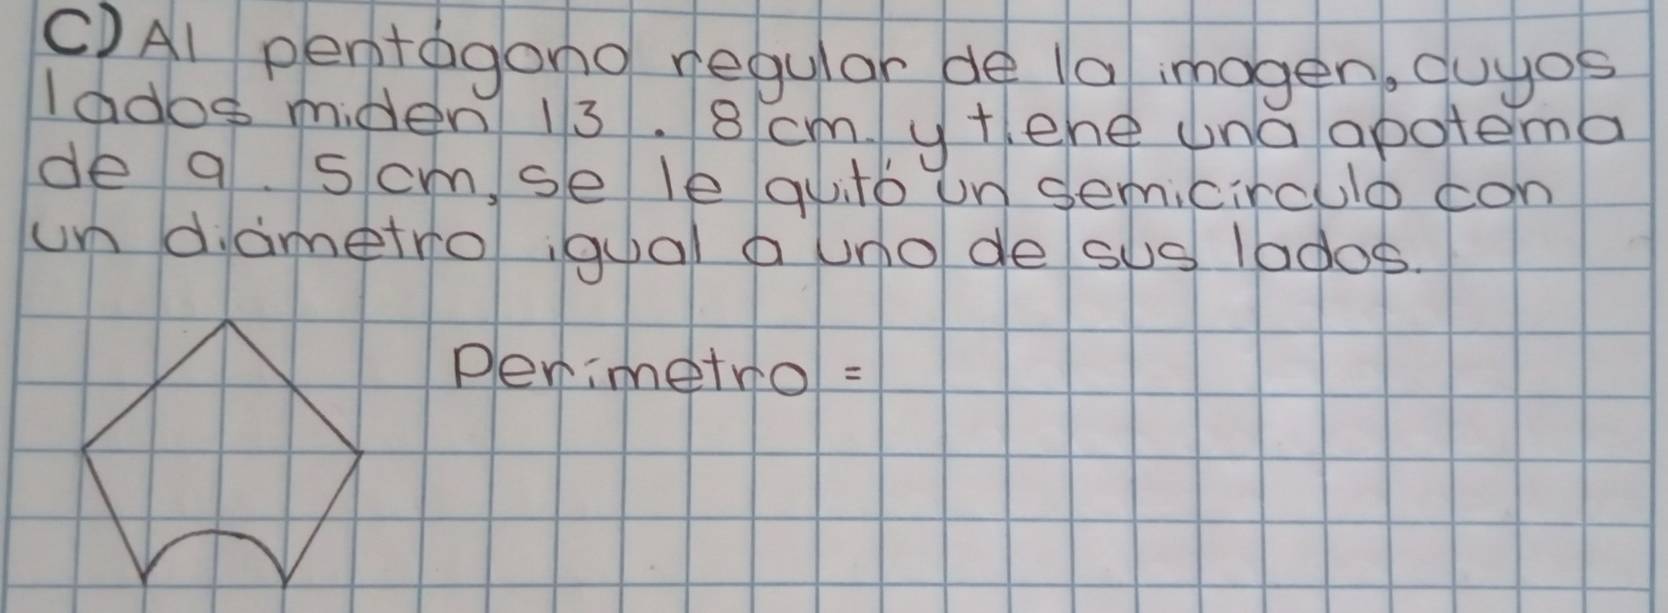 C) Al pentágono regular de la imagen, cuyos
lados miden 13.8 cm. y tiene una apotema
de 9.5 cm, se le quitó un semicirculo con
un diámetro igual a uno de sus lados.
Perimetro =